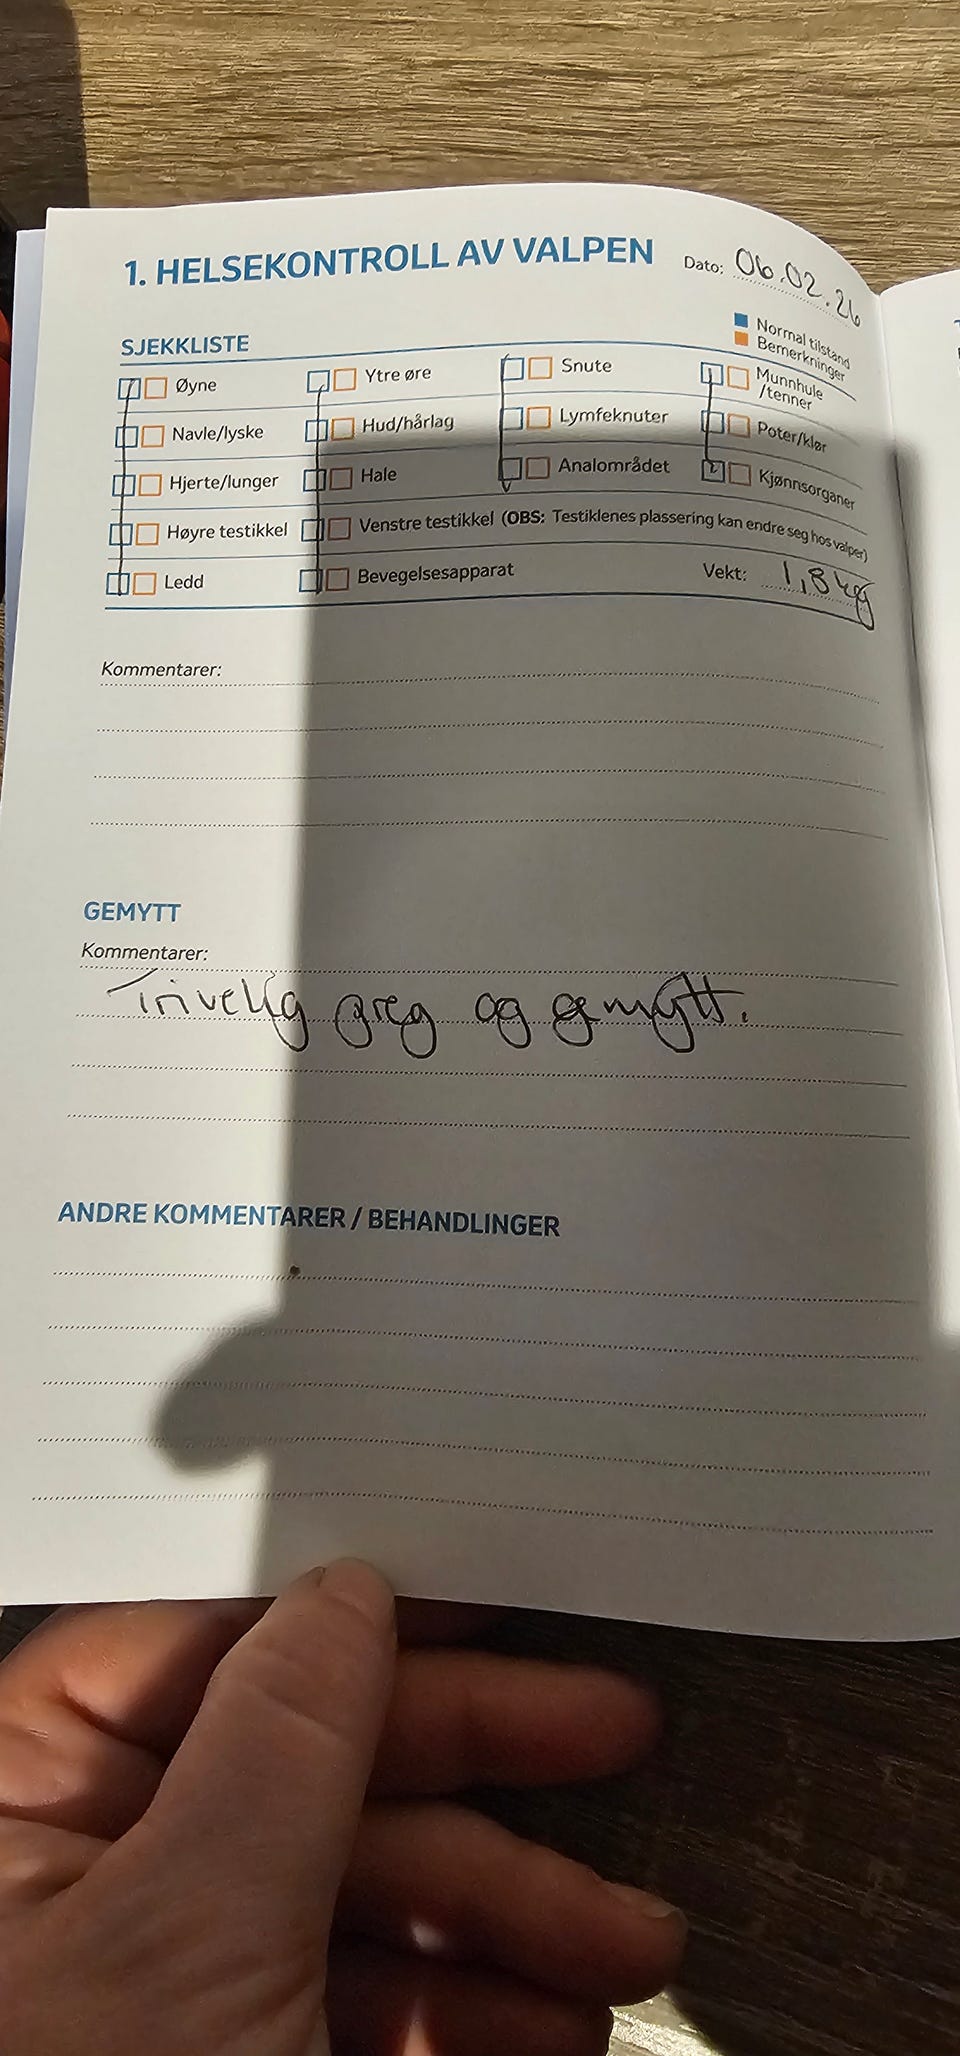 1. HELSEKONTROLL AV VALPEN Dato: 06.02.26
Normal tilstand
Bemerkninger
SJEKKLISTE
Øyne Ytre øre Snute Munnhule /tenner
Navle/lyske Hud/hårlag Lymfeknuter Poter/klør
Hjerte/lunger Hale Analområdet Kjønnsorganer
Høyre testikkel Venstre testikkel (OBS: Testiklenes plassering kan endre seg hos valper)
Ledd Bevegelsesapparat Vekt: 1,8 kg
Kommentarer:
GEMYTT
Kommentarer:
Trivelig greg og gemytt.
ANDRE KOMMENTARER / BEHANDLINGER